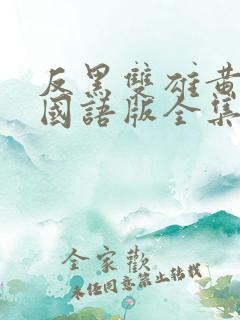 反黑雙雄黃
國語版全集
全家歡
未经同意禁止转载